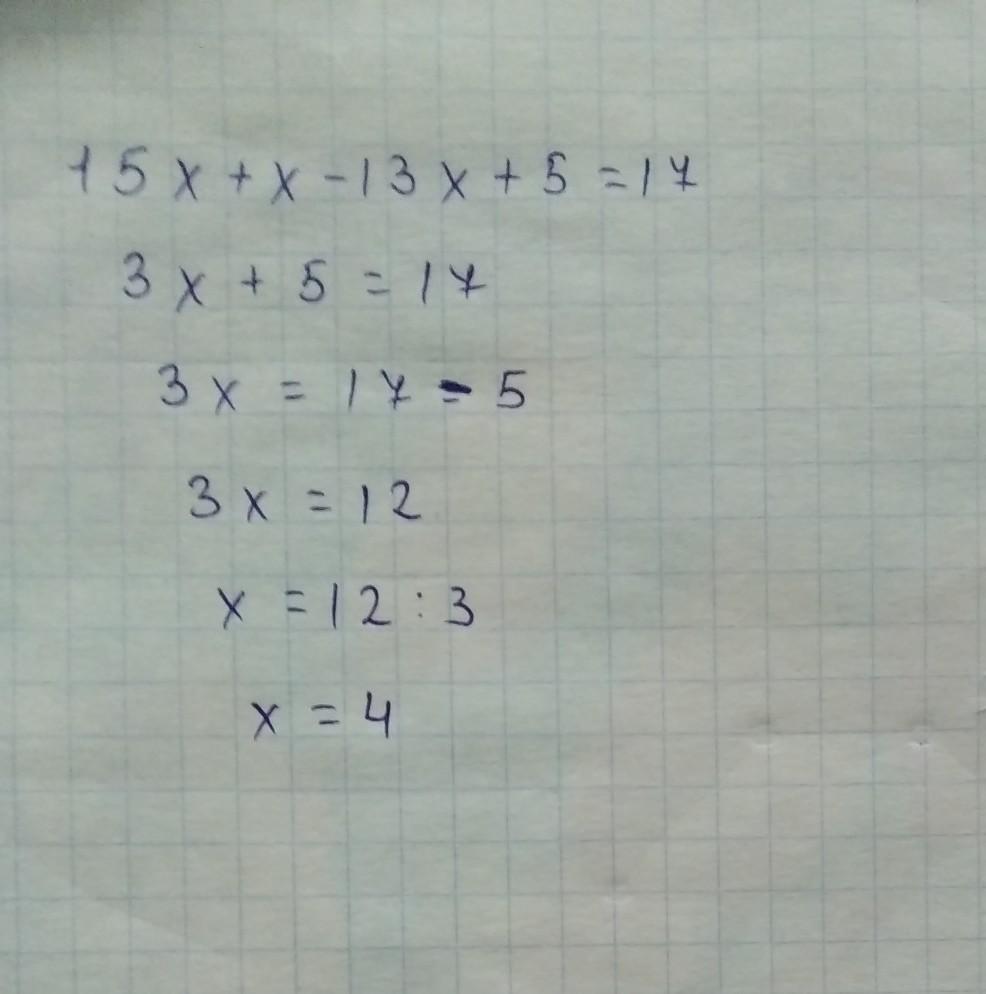 15x+x-13x+5=17
3x+5=17
3x=17-5
3x=12
x=12:3
x=4